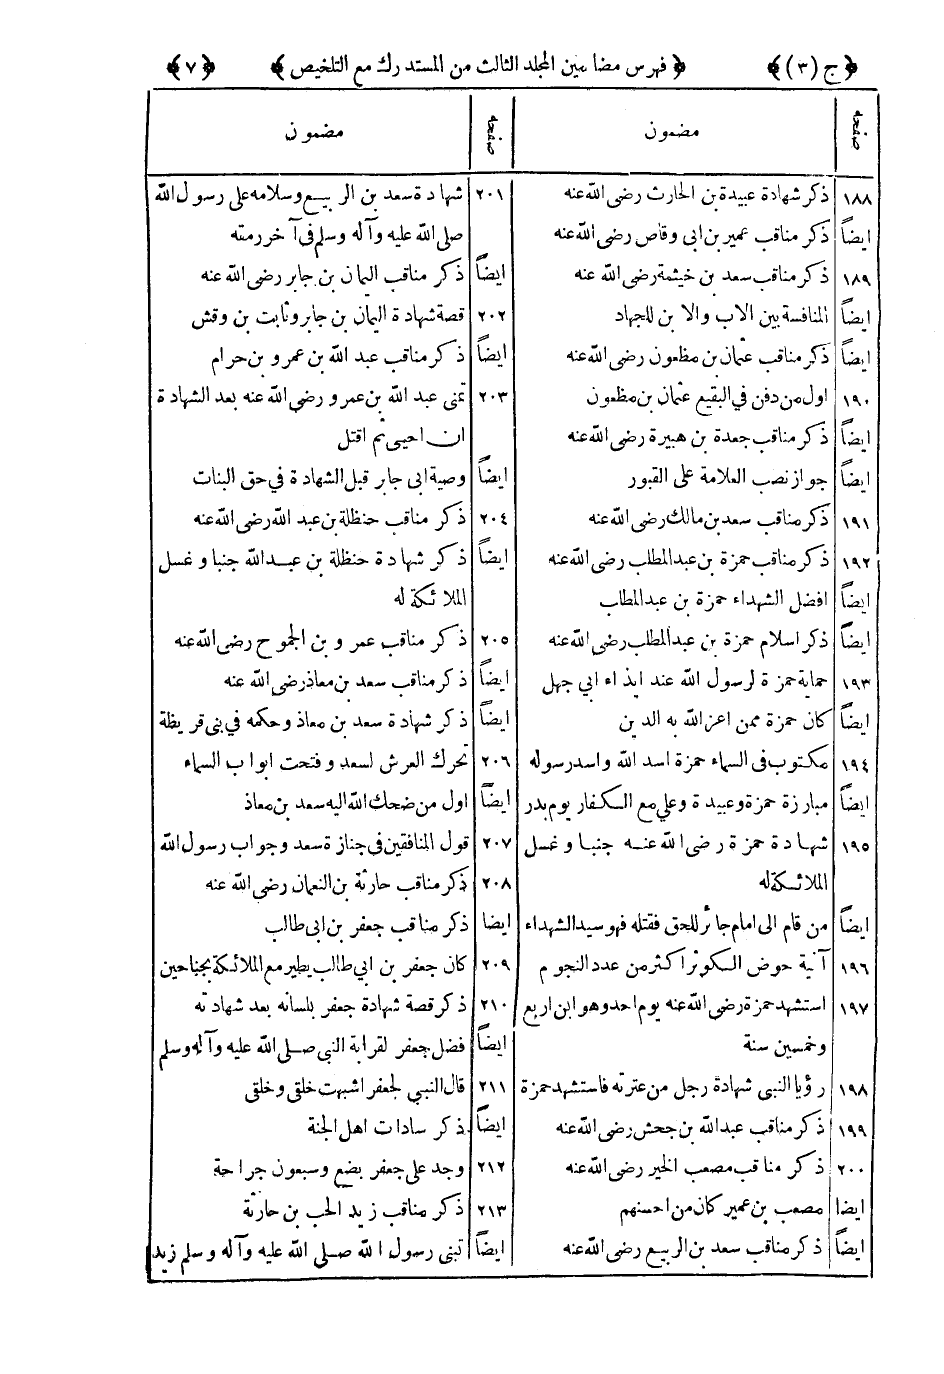 ﴿ج (٣)﴾ ﴿فهرس مضامين المجلد الثالث من المستدرك مع التلخيص﴾ ﴿٧﴾
صفحه مضمون
١٨٨ ذكر شهادة عبيدة بن الحارث رضى الله عنه
ايضاً ذكر مناقب عمير بن ابى وقاص رضى الله عنه
١٨٩ ذكر مناقب سعد بن خيثمة رضى الله عنه
ايضاً المنافسة بين الاب والابن للجهاد
ايضاً ذكر مناقب عثمان بن مظعون رضى الله عنه
١٩٠ اول من دفن في البقيع عثمان بن مظعون
ايضاً ذكر مناقب جعدة بن هبيرة رضى الله عنه
ايضاً جواز نصب العلامة على القبور
١٩١ ذكر مناقب سعد بن مالك رضى الله عنه
١٩٢ ذكر مناقب حمزة بن عبدالمطلب رضى الله عنه
ايضاً افضل الشهداء حمزة بن عبدالمطاب
ايضاً ذكر اسلام حمزة بن عبدالمطلب رضى الله عنه
١٩٣ حماية حمزة لرسول الله عند ايذاء ابي جهل
ايضاً كان حمزة ممن اعز الله به الدين
١٩٤ مكتوب فى السماء حمزة اسد الله واسد رسوله
ايضاً مبارزة حمزة وعبيدة وعلي مع الكفار يوم بدر
١٩٥ شهادة حمزة رضى الله عنه جنبا وغسل
الملائكة له
ايضاً من قام الى امام جائر للحق فقتله فهو سيد الشهداء
١٩٦ آنية حوض الكوثر اكثر من عدد النجوم
١٩٧ استشهد حمزة رضى الله عنه يوم احد وهو ابن اربع
وخمسين سنة
١٩٨ رؤيا النبى شهادة رجل من عترته فاستشهد حمزة
١٩٩ ذكر مناقب عبدالله بن جحش رضى الله عنه
٢٠٠ ذكر مناقب مصعب الخير رضى الله عنه
ايضا مصعب بن عمير كان من احسنهم
ايضاً ذكر مناقب سعد بن الربيع رضى الله عنه
صفحه مضمون
٢٠١ شهادة سعد بن الربيع وسلامه على رسول الله
صلى الله عليه وآله وسلم فى آخر رمته
ايضاً ذكر مناقب اليمان بن جابر رضى الله عنه
٢٠٢ قصة شهادة اليمان بن جابر وثابت بن وقش
ايضاً ذكر مناقب عبد الله بن عمرو بن حرام
٢٠٣ تمنى عبد الله بن عمرو رضى الله عنه بعد الشهادة
ان احيى ثم اقتل
ايضاً وصية ابى جابر قبل الشهادة في حق البنات
٢٠٤ ذكر مناقب حنظلة بن عبد الله رضى الله عنه
ايضاً ذكر شهادة حنظلة بن عبد الله جنبا وغسل
الملائكة له
٢٠٥ ذكر مناقب عمرو بن الجموح رضى الله عنه
ايضاً ذكر مناقب سعد بن معاذ رضى الله عنه
ايضاً ذكر شهادة سعد بن معاذ وحكمه في بنى قريظة
٢٠٦ تحرك العرش لسعد وفتحت ابواب السماء
ايضاً اول من ضحك الله اليه سعد بن معاذ
٢٠٧ قول المنافقين فى جنازة سعد وجواب رسول الله
٢٠٨ ذكر مناقب حارثة بن النعمان رضى الله عنه
ايضا ذكر مناقب جعفر بن ابى طالب
٢٠٩ كان جعفر بن ابي طالب يطير مع الملائكة بجناحين
٢١٠ ذكر قصة شهادة جعفر بلسانه بعد شهادته
ايضاً فضل جعفر لقرابة النبى صلى الله عليه وآله وسلم
٢١١ قال النبي لجعفر اشبهت خلقي وخلقي
ايضاً ذكر سادات اهل الجنة
٢١٢ وجد على جعفر بضع وسبعون جراحة
٢١٣ ذكر مناقب زيد الحب بن حارثة
ايضاً تبنى رسول الله صلى الله عليه وآله وسلم زيد